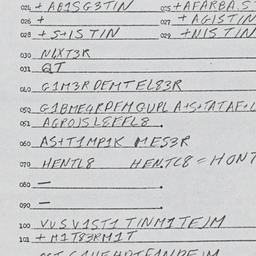 024 + AB1SG3TIN 025 + AFARBA.S
026 + 027 + AGISTIN
028 + S+IS TIN 029 + NIS TIN
030 NIXT3R
031 QT
040 G1M3R DEMTEL83R
050 G1BMEGRDFMQUPL A+S+TATAF+L
051 AGROJSLEFFL8
060 AS+T1MP1K MES3R
070 HENTL8 HENTC8 = HONT
080 — .
090 — .
100 VUSV1ST1 TINM1TEJM
101 + M1T83RM1T